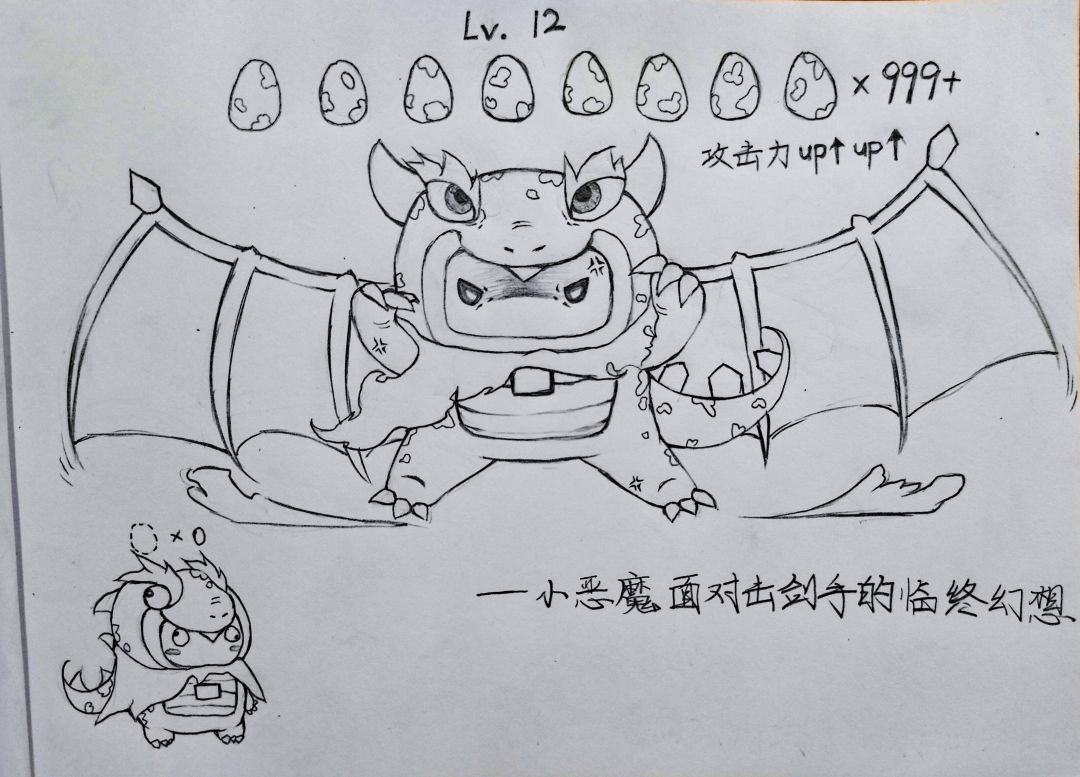 Lv. 12
× 999+
攻击力up↑up↑
× 0
一小恶魔面对击剑手的临终幻想